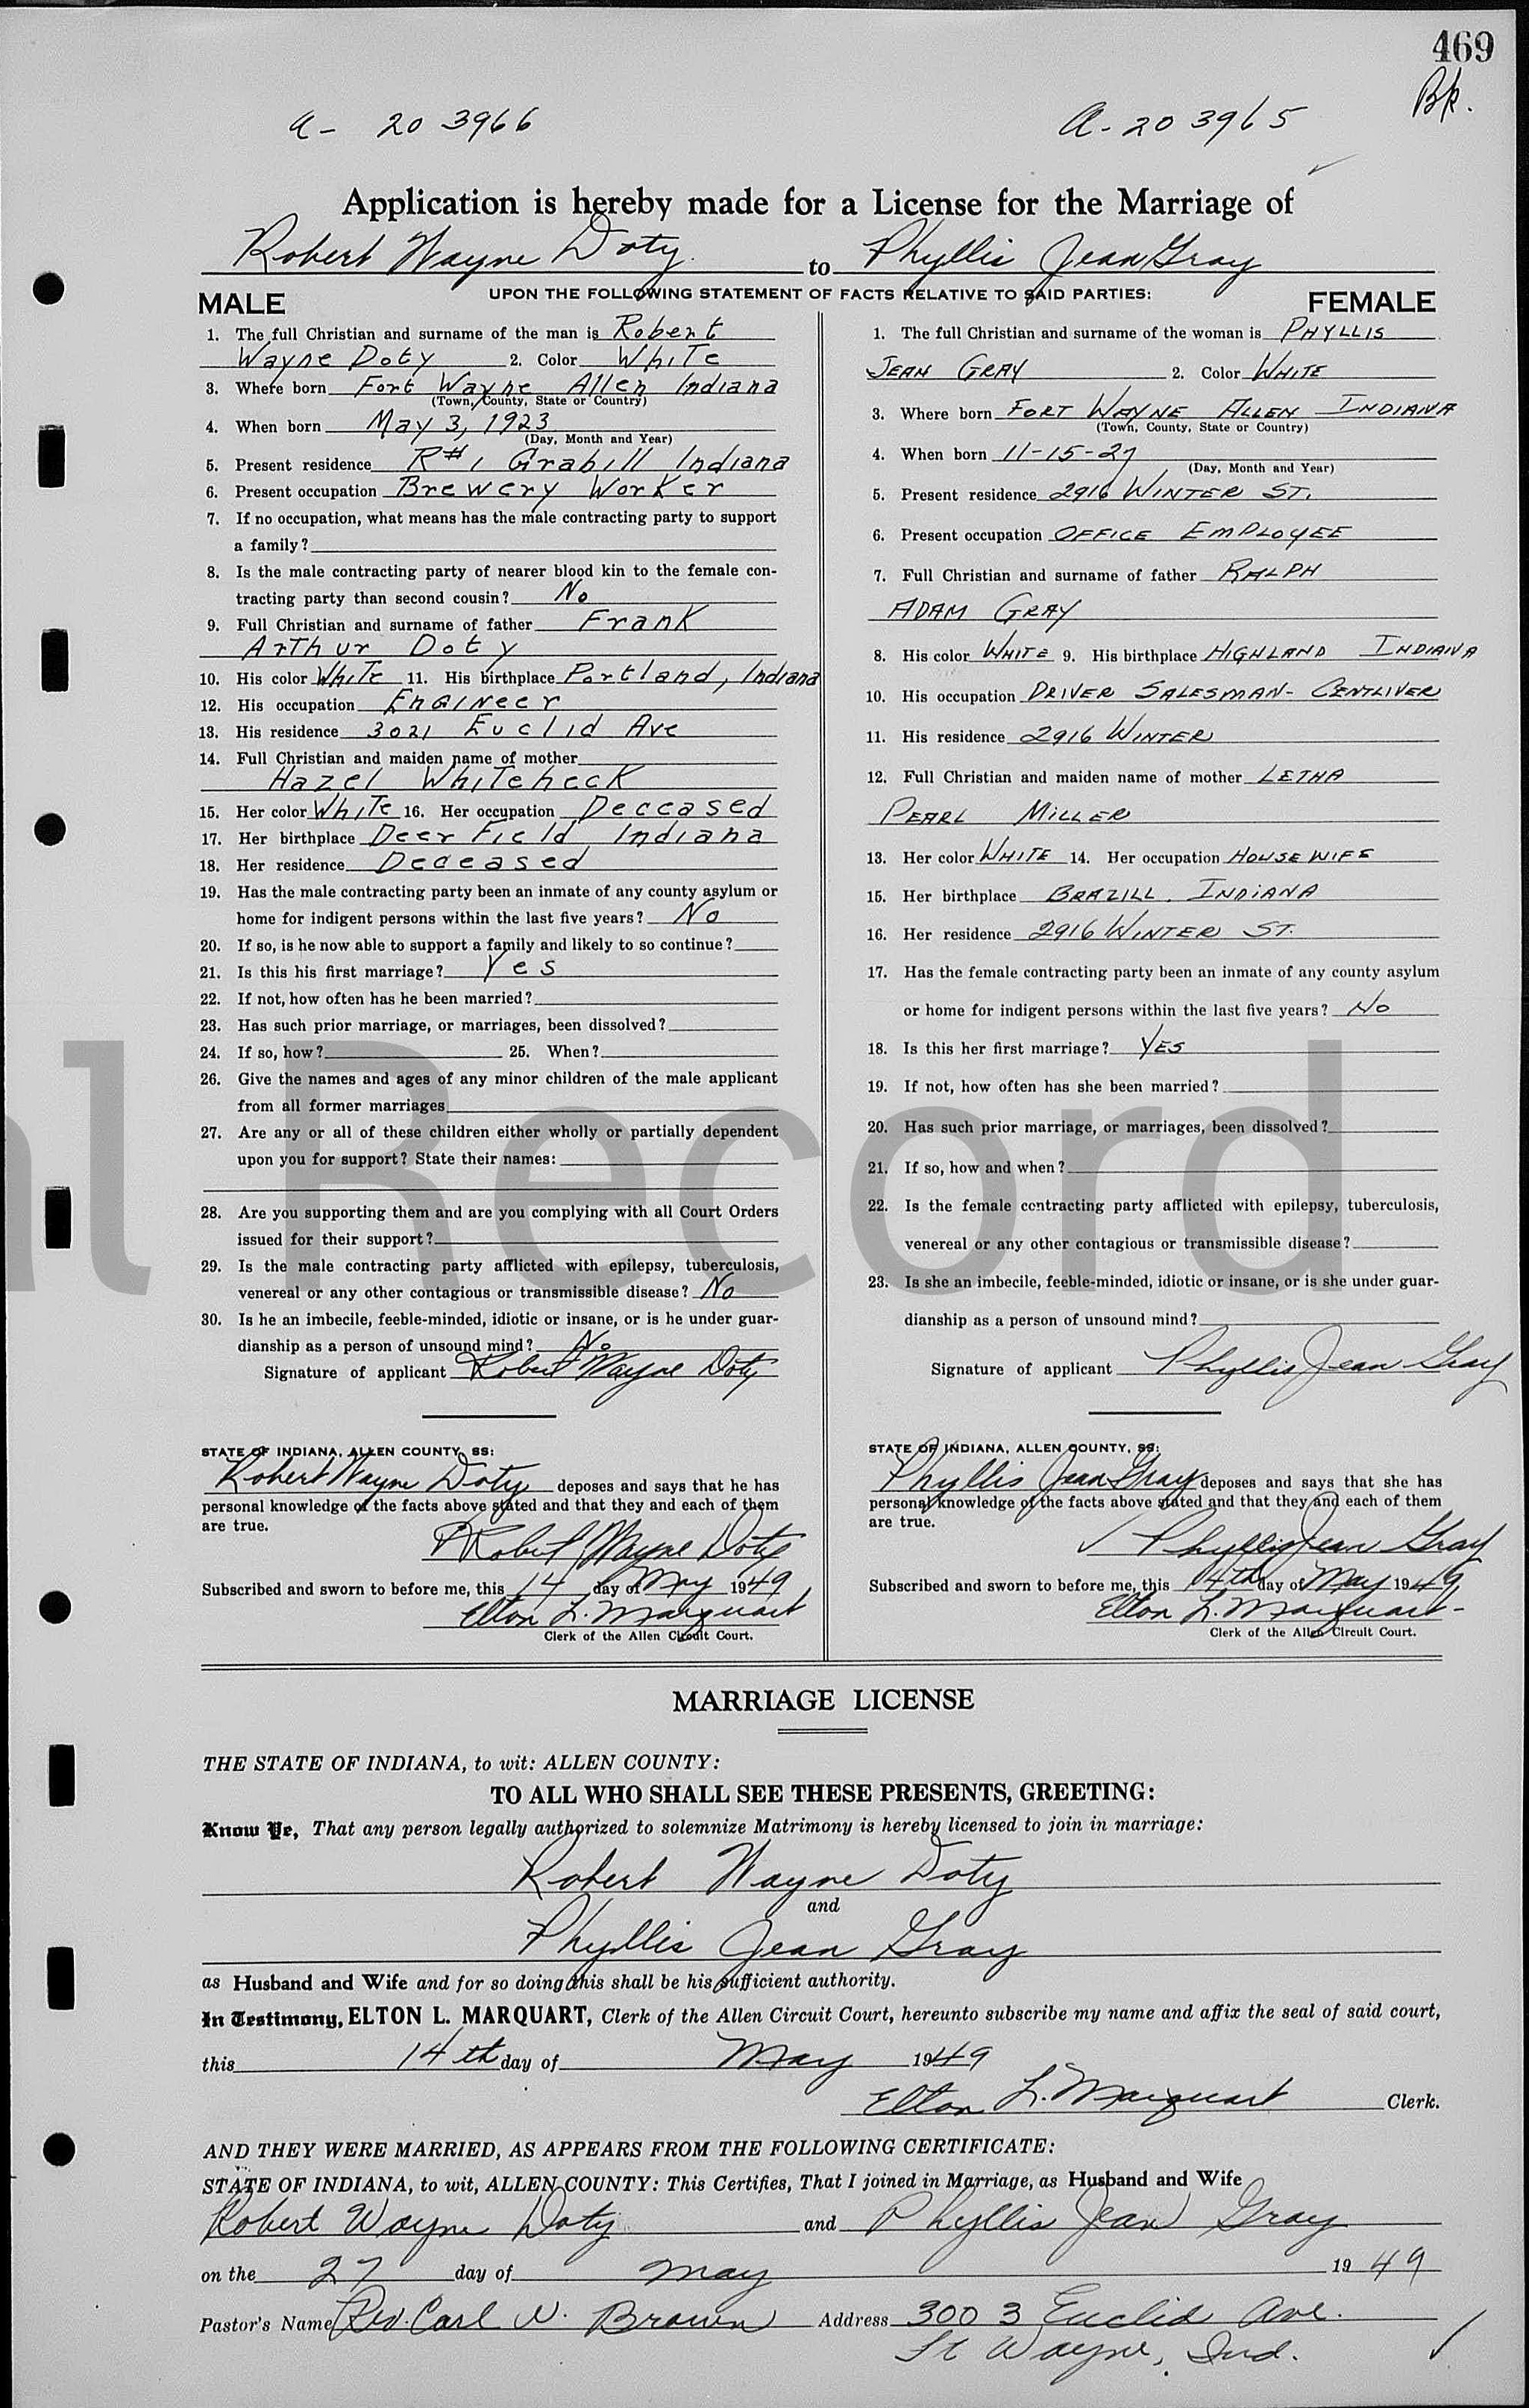 469
Bk.
a- 20 3966
a- 20 3965
Application is hereby made for a License for the Marriage of
Robert Wayne Doty to Phyllis Jean Gray
UPON THE FOLLOWING STATEMENT OF FACTS RELATIVE TO SAID PARTIES:
MALE
1. The full Christian and surname of the man is Robert
Wayne Doty 2. Color White
3. Where born Fort Wayne Allen Indiana
(Town, County, State or Country)
4. When born May 3, 1923
(Day, Month and Year)
5. Present residence R#1 Grabill Indiana
6. Present occupation Brewery Worker
7. If no occupation, what means has the male contracting party to support
a family?
8. Is the male contracting party of nearer blood kin to the female con-
tracting party than second cousin? No
9. Full Christian and surname of father Frank
Arthur Doty
10. His color White 11. His birthplace Portland, Indiana
12. His occupation Engineer
13. His residence 3021 Euclid Ave
14. Full Christian and maiden name of mother
Hazel Whiteneck
15. Her color White 16. Her occupation Deceased
17. Her birthplace Deerfield Indiana
18. Her residence Deceased
19. Has the male contracting party been an inmate of any county asylum or
home for indigent persons within the last five years? No
20. If so, is he now able to support a family and likely to so continue?
21. Is this his first marriage? Yes
22. If not, how often has he been married?
23. Has such prior marriage, or marriages, been dissolved?
24. If so, how? 25. When?
26. Give the names and ages of any minor children of the male applicant
from all former marriages
27. Are any or all of these children either wholly or partially dependent
upon you for support? State their names:
28. Are you supporting them and are you complying with all Court Orders
issued for their support?
29. Is the male contracting party afflicted with epilepsy, tuberculosis,
venereal or any other contagious or transmissible disease? No
30. Is he an imbecile, feeble-minded, idiotic or insane, or is he under guar-
dianship as a person of unsound mind? No
Signature of applicant Robert Wayne Doty
STATE OF INDIANA, ALLEN COUNTY, SS:
Robert Wayne Doty deposes and says that he has
personal knowledge of the facts above stated and that they and each of them
are true.
Robert Wayne Doty
Subscribed and sworn to before me, this 14 day of May 1949
Elton L. Marquart
Clerk of the Allen Circuit Court.
FEMALE
1. The full Christian and surname of the woman is PHYLLIS
JEAN GRAY 2. Color WHITE
3. Where born FORT WAYNE ALLEN INDIANA
(Town, County, State or Country)
4. When born 11-15-27
(Day, Month and Year)
5. Present residence 2916 WINTER ST.
6. Present occupation OFFICE EMPLOYEE
7. Full Christian and surname of father RALPH
ADAM GRAY
8. His color WHITE 9. His birthplace HIGHLAND INDIANA
10. His occupation DRIVER SALESMAN- CENTLIVER
11. His residence 2916 WINTER
12. Full Christian and maiden name of mother LETHA
PEARL MILLER
13. Her color WHITE 14. Her occupation HOUSEWIFE
15. Her birthplace BRAZILL, INDIANA
16. Her residence 2916 WINTER ST.
17. Has the female contracting party been an inmate of any county asylum
or home for indigent persons within the last five years? No
18. Is this her first marriage? YES
19. If not, how often has she been married?
20. Has such prior marriage, or marriages, been dissolved?
21. If so, how and when?
22. Is the female contracting party afflicted with epilepsy, tuberculosis,
venereal or any other contagious or transmissible disease?
23. Is she an imbecile, feeble-minded, idiotic or insane, or is she under guar-
dianship as a person of unsound mind?
Signature of applicant Phyllis Jean Gray
STATE OF INDIANA, ALLEN COUNTY, SS:
Phyllis Jean Gray deposes and says that she has
personal knowledge of the facts above stated and that they and each of them
are true.
Phyllis Jean Gray
Subscribed and sworn to before me, this 14th day of May 1949
Elton L. Marquart
Clerk of the Allen Circuit Court.
l Record
MARRIAGE LICENSE
THE STATE OF INDIANA, to wit: ALLEN COUNTY:
TO ALL WHO SHALL SEE THESE PRESENTS, GREETING:
Know Ye, That any person legally authorized to solemnize Matrimony is hereby licensed to join in marriage:
Robert Wayne Doty
and
Phyllis Jean Gray
as Husband and Wife and for so doing this shall be his sufficient authority.
In Testimony, ELTON L. MARQUART, Clerk of the Allen Circuit Court, hereunto subscribe my name and affix the seal of said court,
this 14th day of May 1949
Elton L. Marquart Clerk.
AND THEY WERE MARRIED, AS APPEARS FROM THE FOLLOWING CERTIFICATE:
STATE OF INDIANA, to wit, ALLEN COUNTY: This Certifies, That I joined in Marriage, as Husband and Wife
Robert Wayne Doty and Phyllis Jean Gray
on the 27 day of May 1949
Pastor's Name Rev. Carl N. Brown Address 3003 Euclid Ave.
Ft Wayne, Ind.